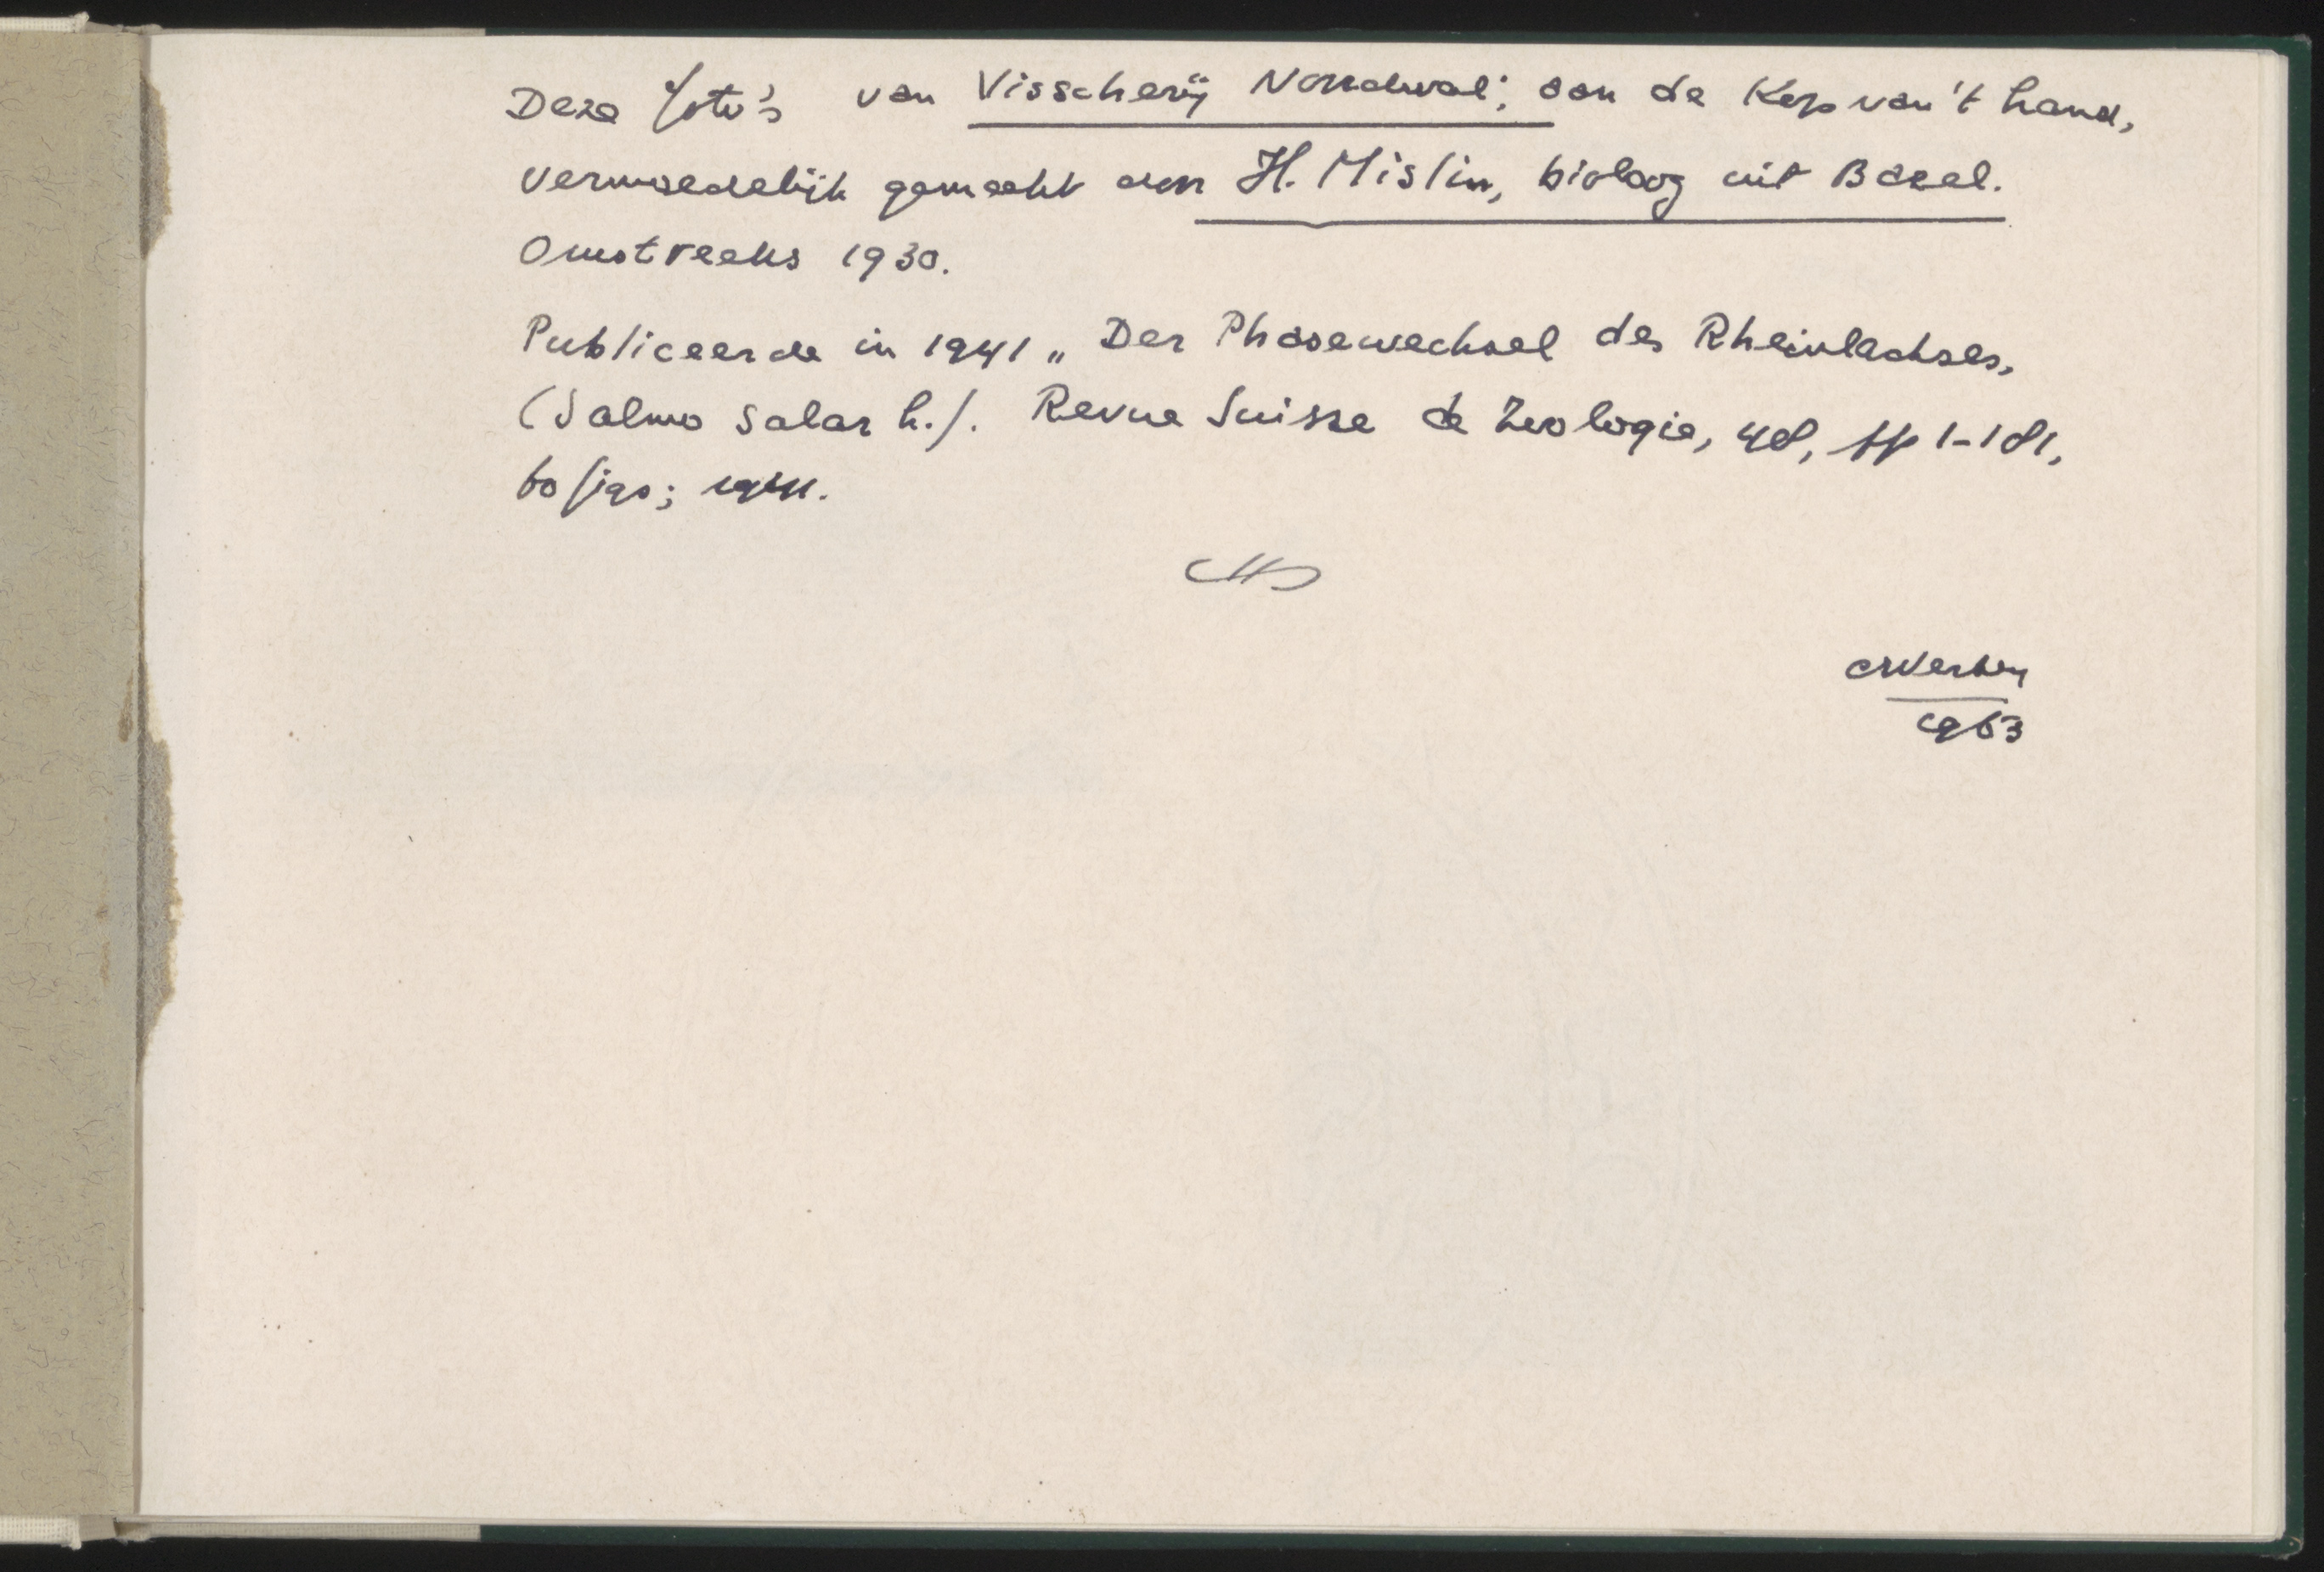 Deze foto's van Visscherij Noordwal; aan de Kop van 't Land,
vermoedelijk gemaakt door H. Mislin, bioloog uit Bazel.
Omstreeks 1930.
Publiceerde in 1941 „Der Phasewechsel des Rheinlachses,
(Salmo Salar L.). Revue Suisse de Zoologie, 48, pp 1-181,
60 figs; 1941.
Verhey
1963